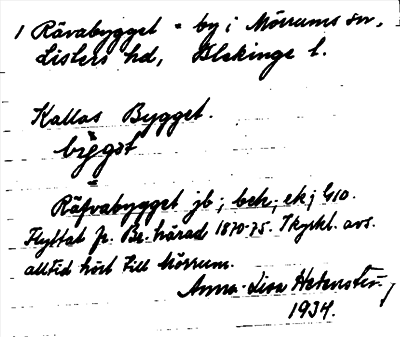 1 Rävabygget - by i Mörrums sn,
Listers hd, Blekinge l.
Kallas Bygget.
bygget
Räfvabygget jb; beb; ek; G10.
Flyttat fr. Br. härad 1870-75. I kyrkl. avs.
alltid hört till Mörrum.
Anna-Lisa
1934.